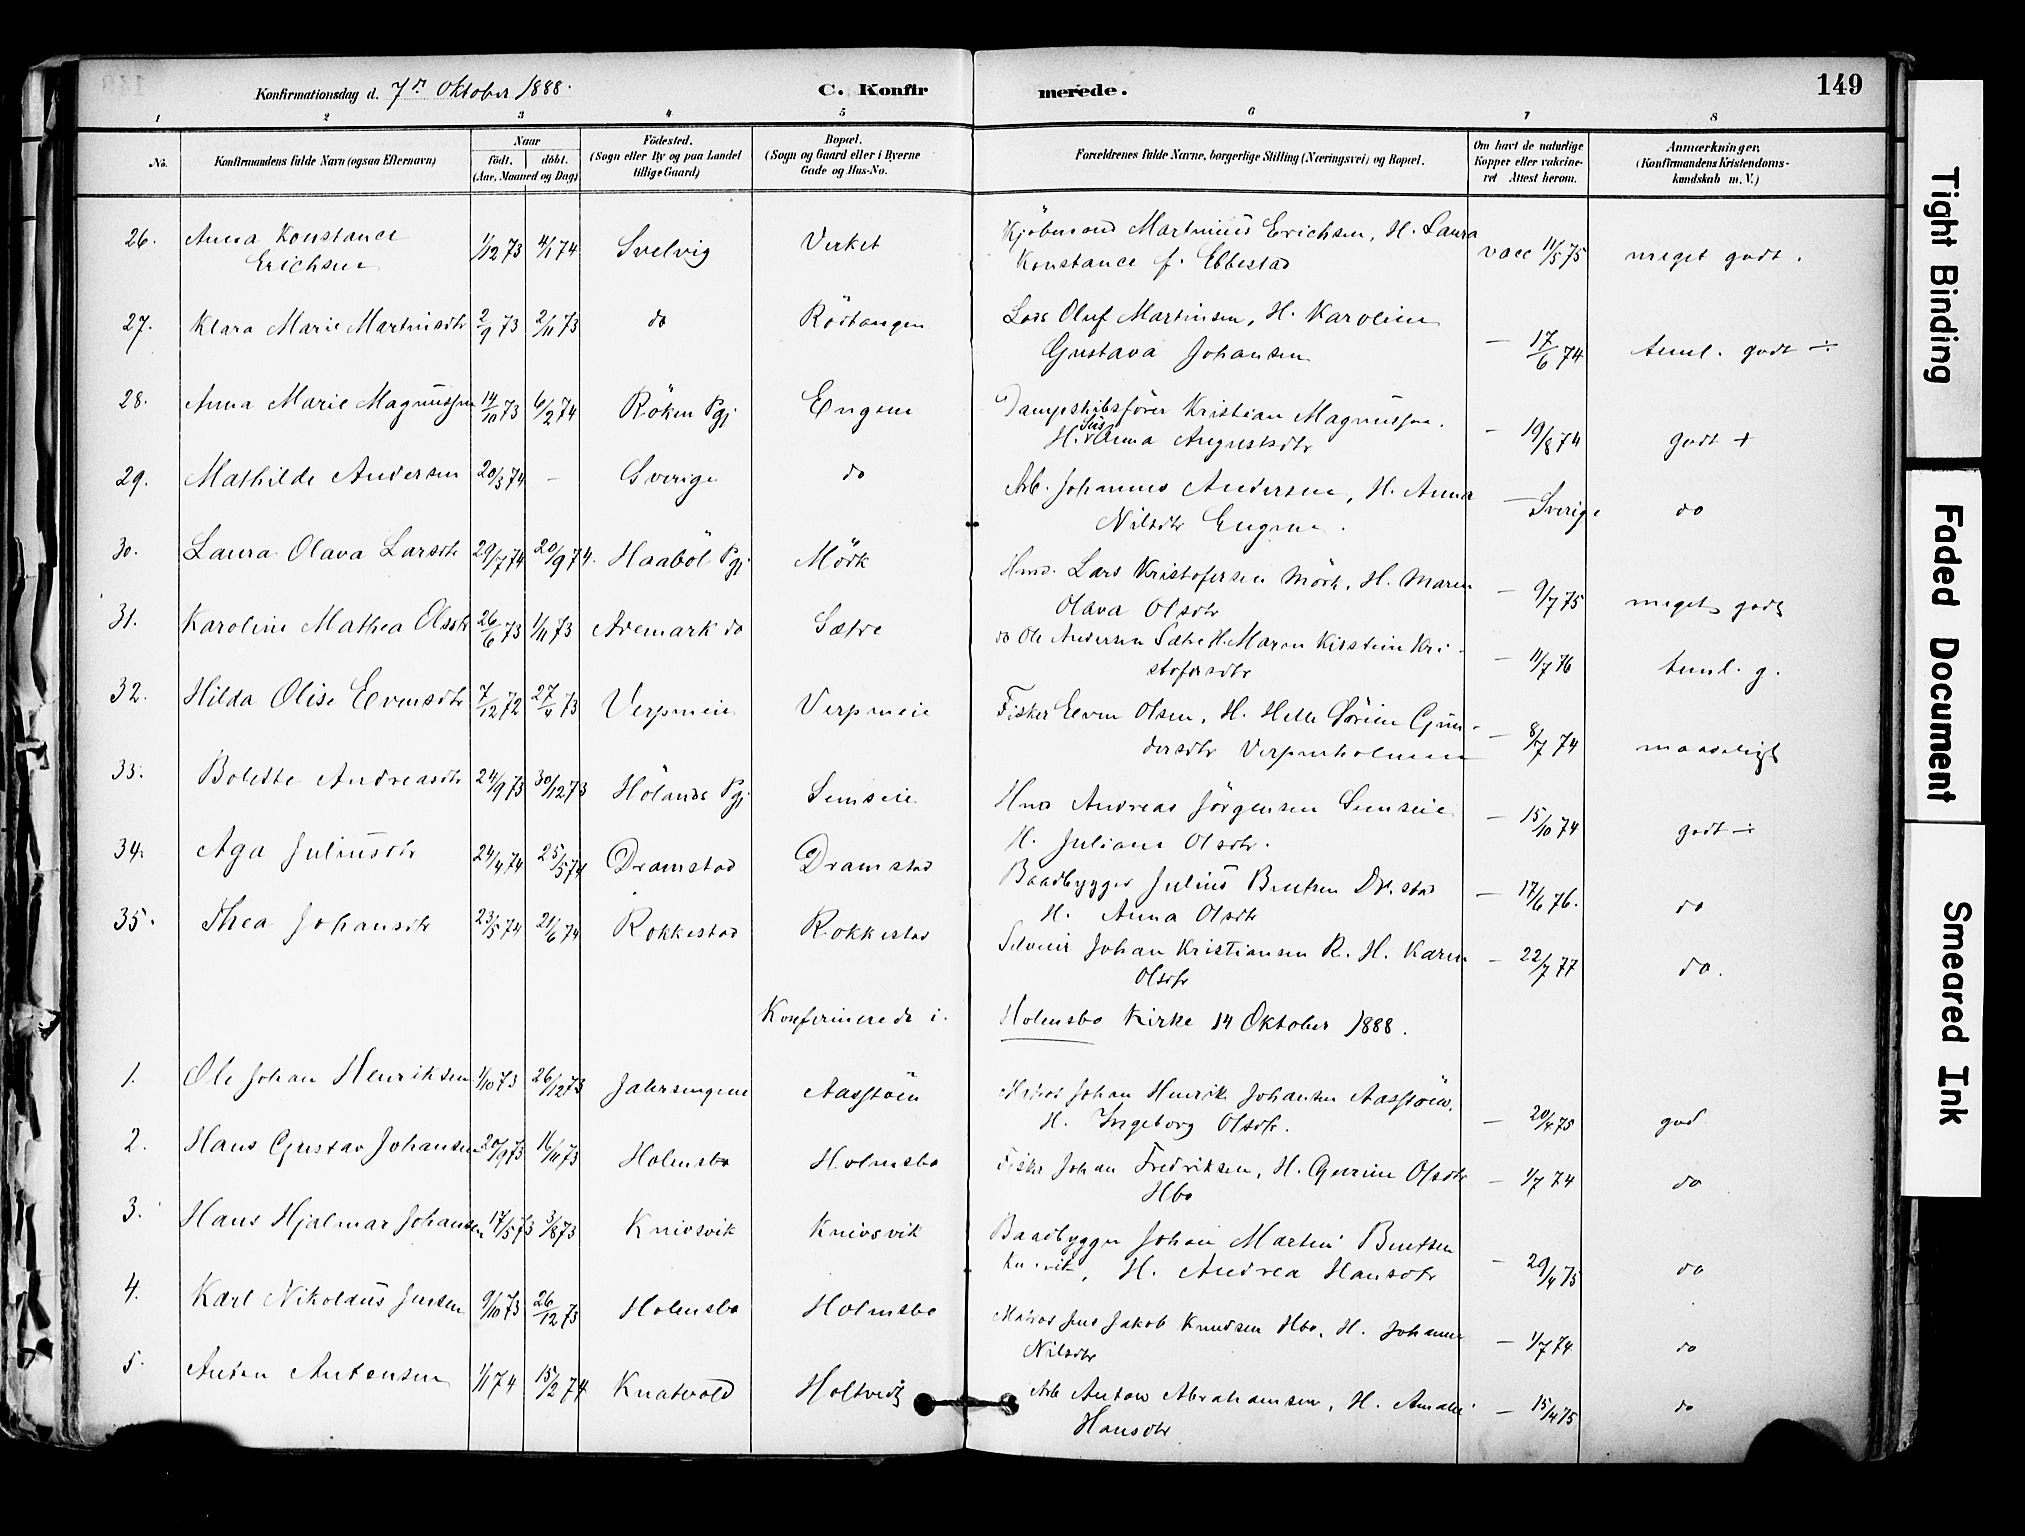 149
Konfirmationsdag d. 7de Oktober 1888.
C. Konfirmerede.
1 2 3 4 5 6 7 8
No.
Konfirmandens fulde Navn (ogsaa Efternavn)
Naar
født. døbt.
(Aar, Maaned og Dag)
Fødested.
(Sogn eller By og paa Landet
tillige Gaard)
Bopæl.
(Sogn og Gaard eller i Byerne
Gade og Hus-No.
Forældrenes fulde Navne, borgerlige Stilling (Næringsvei) og Bopæl.
Om havt de naturlige
Kopper eller vakcine-
ret Attest herom.
Anmærkninger.
(Konfirmandens Kristendoms-
kundskab m. V.)
26. Anna Konstance Erichsen 1/12 73 4/1 74 Svelvig Verket Kjöbmand Martinius Erichsen, H. Laura
Konstance f. Ebbestad vacc 11/5 75 meget godt.
27. Klara Marie Martinsdtr 2/9 73 2/11 73 do Rödtangen Lods Oluf Martinsen, H. Karoline
Gustava Johansen — 17/6 74 teml. godt ÷
28. Anna Marie Magnussen 14/10 73 6/2 74 Röken Pgj Engene Dampskibsförer Kristian Magnussen.
H. Anna Augustsdtr — 19/8 74 godt +
29. Mathilde Andersen 20/3 74 — Sverige do Arb. Johannes Andersen, H. Anna
Nilsdtr Engene. — Sverige do
30. Laura Olava Larsdtr 29/7 74 20/9 74. Haaböl Pgj. Mörk Hmd. Lars Kristofersen Mörk, H. Maren
Olava Olsdtr — 9/7 75 meget godt
31. Karoline Mathea Olsdtr 26/6 73 1/11 73 Aremark do Sætre do Ole Andersen Sætre H. Maren Kirstine Kri-
stofersdtr — 11/7 76 teml. g.
32. Hilda Olise Evensdtr 7/12 72 27/4 73 Verpneie Verpneie Fisker Even Olsen, H. Helle Sörine Gun-
dersdtr Verpenholmen — 8/7 74 maadeligt
33. Bolette Andreasdtr 24/9 73 30/12 73 Hölands Pgj Semseie Hmd Andreas Jörgensen Semseie
H. Juliane Olsdtr. — 15/10 74 godt ÷
34. Aga Juliusdtr 24/4 74 25/5 74 Dramstad Dramstad Baadbygger Julius Bentsen Dr.stad
H. Anna Olsdtr — 17/6 76. do
35. Thea Johansdtr 23/5 74 21/6 74 Rokkestad Rokkestad Selveier Johan Kristiansen R. H. Karen
Olsdtr — 22/7 77 do.
Konfirmerede i Holmsbo Kirke 14 Oktober 1888.
1. Ole Johan Henriksen 1/10 73 26/12 73 Jahrsengene Aasstöen Matros Johan Henrik Johansen Aasstöen.
H. Ingeborg Olsdtr. — 20/4 75 god
2. Hans Gustav Johansen 20/9 73 16/11 73 Holmsbo Holmsbo Fisker Johan Fredriksen, H. Gurine Olsdtr
Hbo — 1/7 74 do
3. Hans Hjalmar Johansen 17/5 73 3/8 73 Knivsvik Knivsvik Baadbygger Johan Martin Bentsen
H. Andrea Hansdtr — 29/4 75 do
4. Karl Nikolaus Jensen 9/10 73 26/12 73 Holmsbo Holmsbo Matros Jens Jakob Knudsen Hbo, H. Johanne
Nilsdtr — 1/7 74 do
5. Anton Antonsen 1/1 74 15/2 74 Knatvold Holtvedt Arb Anton Abrahamsen, H. Amalie
Hansdtr — 15/4 75 do
Tight Binding
Faded Document
Smeared Ink